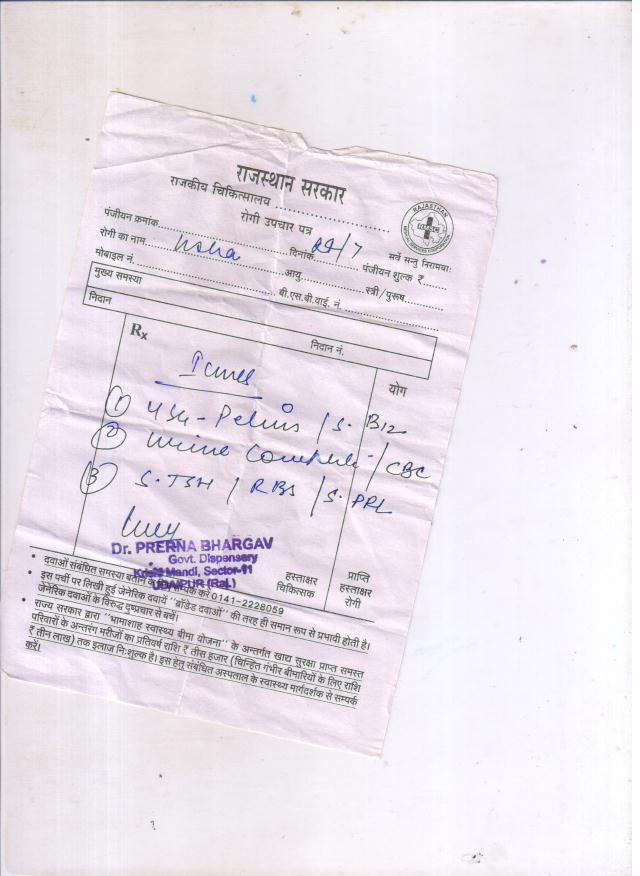 राजस्थान सरकार
राजकीय चिकित्सालय ........................
रोगी उपचार पत्र
RAJASTHAN
पंजीयन क्रमांक........................ दिनांक 29/7 सर्वे सन्तु निरामयाः
रोगी का नाम Usha पंजीयन शुल्क ₹........
मोबाइल नं. ........................ आयु........................ स्त्री/पुरूष............
मुख्य समस्या बी.एस.बी.वाई. नं. ........................
निदान
Rx निदान नं. योग
① USG - Pelvis / S. B12
② Urine Complete / CBC
③ S. TSH / RBS / S. PRL
Dr. PRERNA BHARGAV
Govt. Dispensary
Krishi Mandi, Sector-11
UDAIPUR (Raj.)
हस्ताक्षर चिकित्सक
प्राप्ति हस्ताक्षर रोगी
• दवाओं संबंधित समस्या बताने के सम्पर्क करे 0141-2228059
• इस पर्ची पर लिखी हुई जेनेरिक दवायें "ब्रांडेड दवाओं" की तरह ही समान रूप से प्रभावी होती है।
जेनेरिक दवाओं के विरुद्ध दुष्प्रचार से बचें।
• राज्य सरकार द्वारा "भामाशाह स्वास्थ्य बीमा योजना" के अन्तर्गत खाद्य सुरक्षा प्राप्त समस्त
परिवारों के अन्तरंग मरीजों का प्रतिवर्ष राशि ₹ तीस हजार (चिन्हित गंभीर बीमारियों के लिए राशि
₹ तीन लाख) तक इलाज निःशुल्क है। इस हेतु संबंधित अस्पताल के स्वास्थ्य मार्गदर्शक से सम्पर्क
करें।